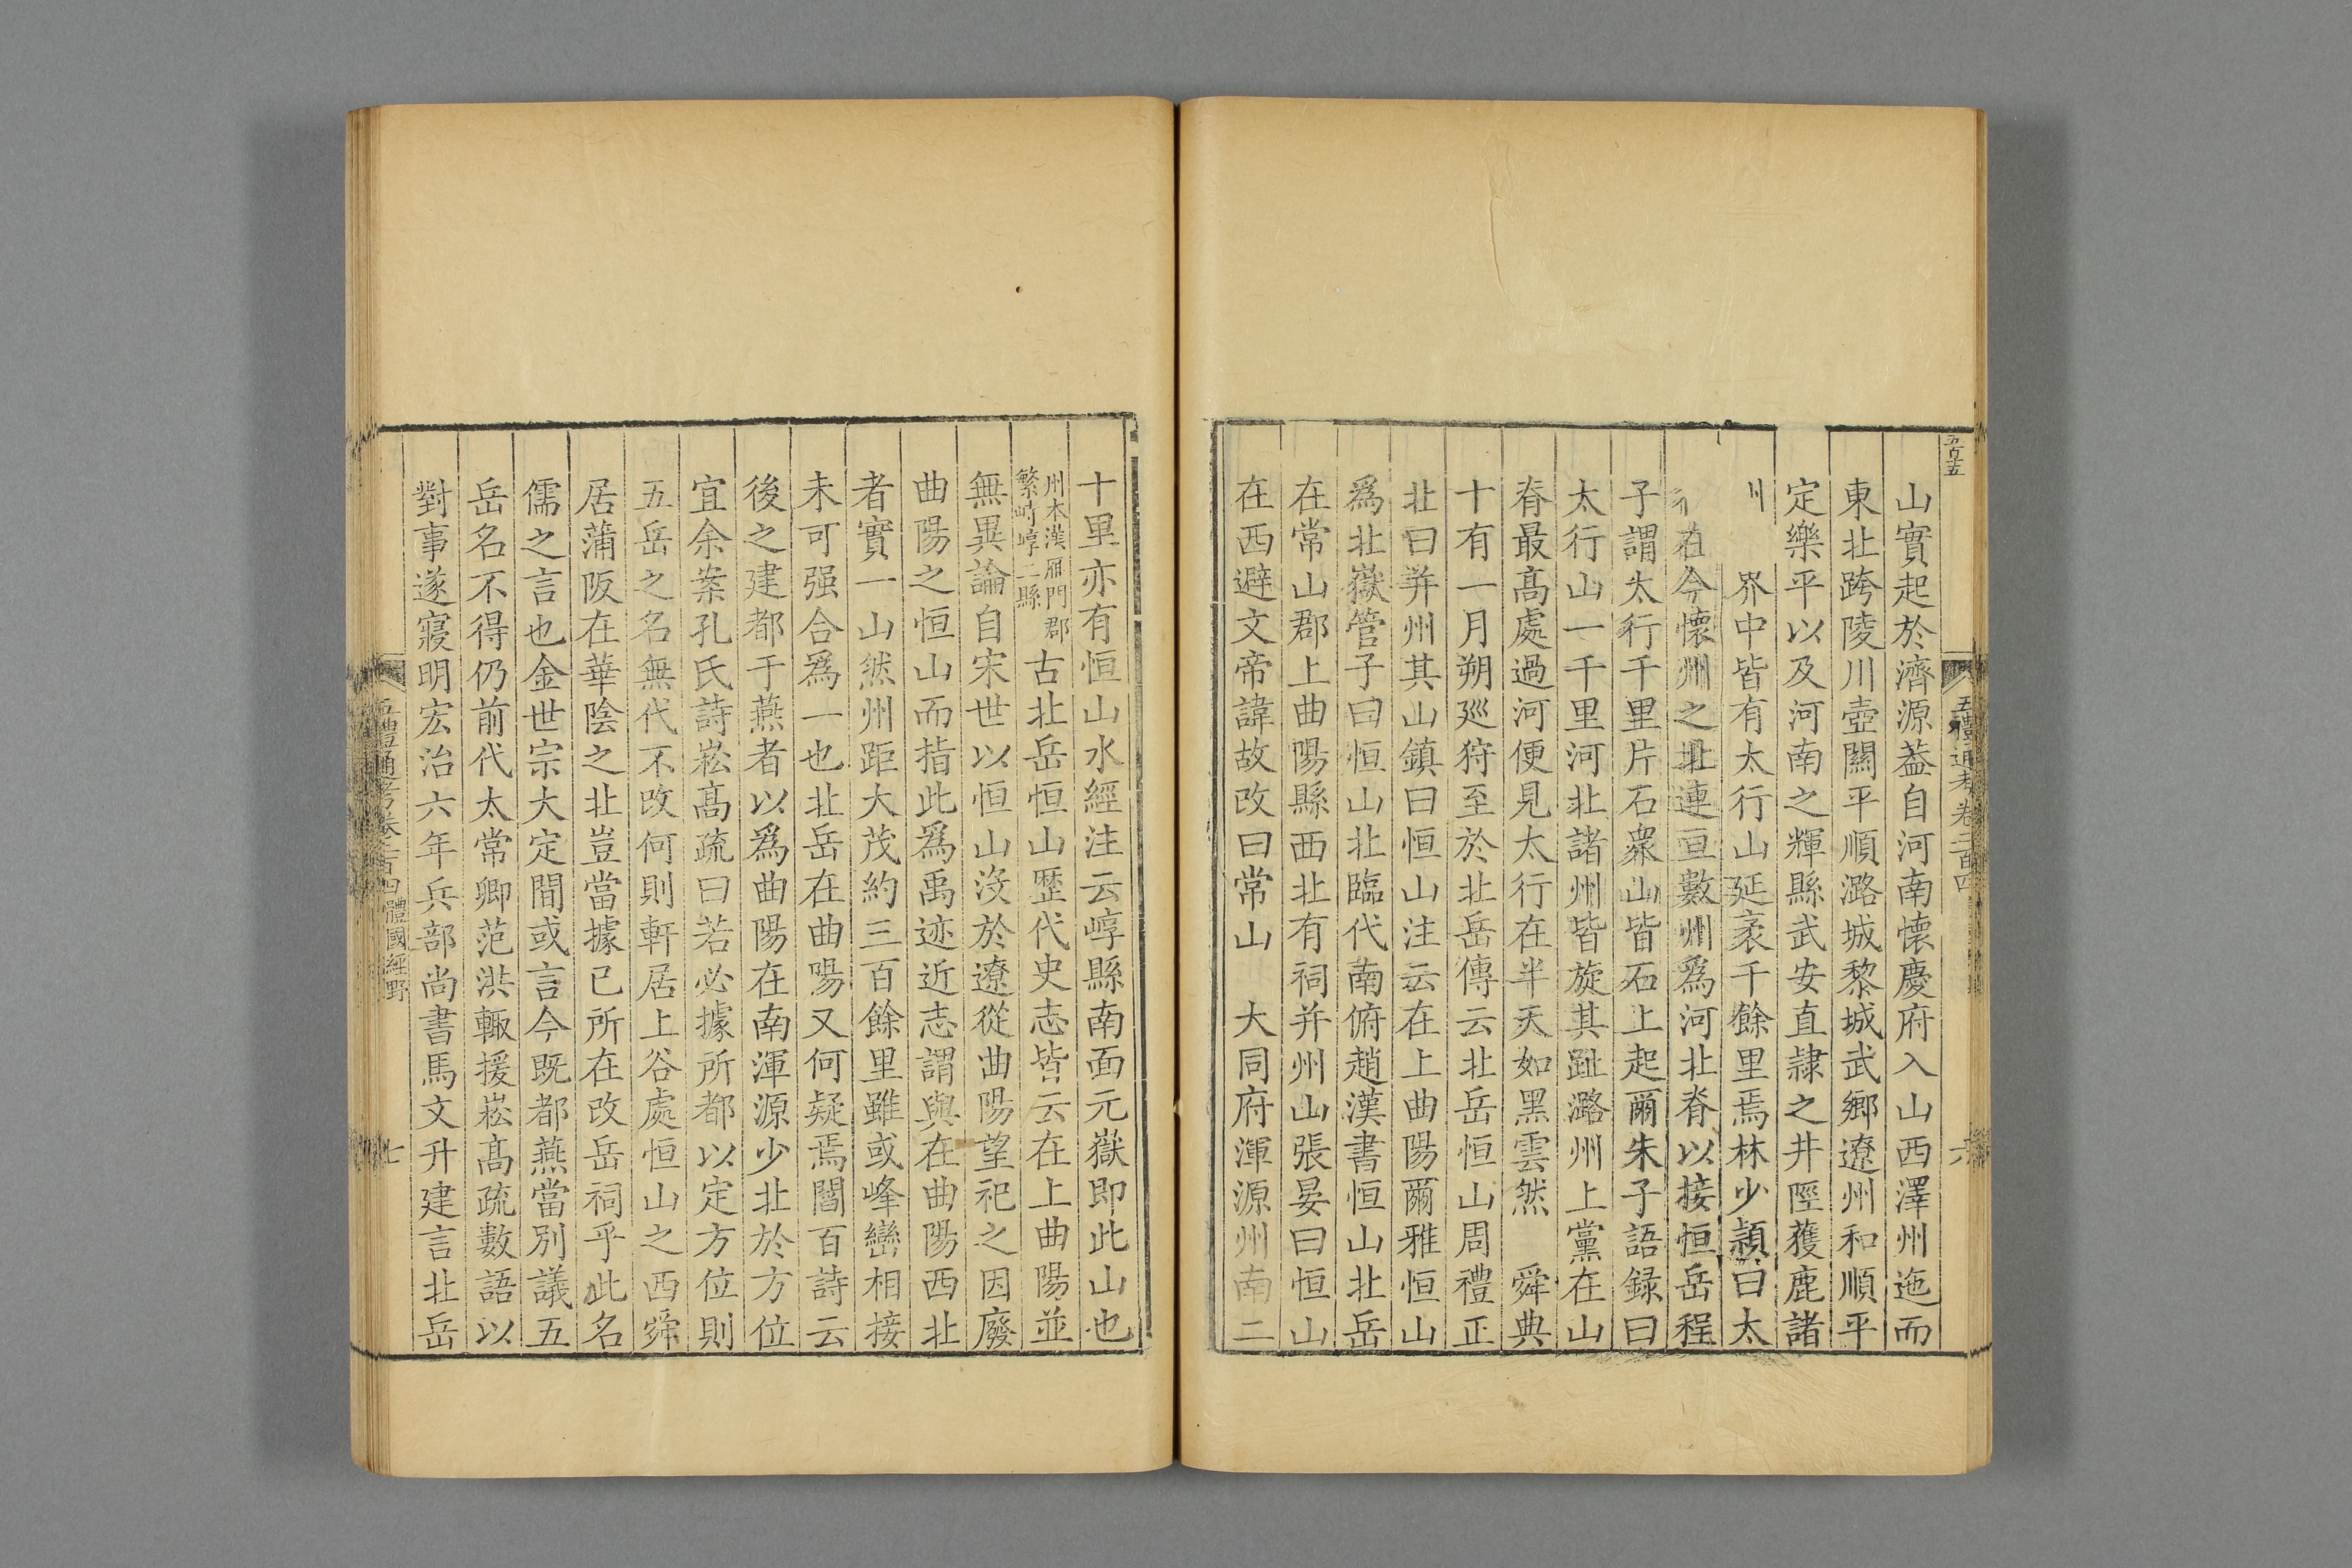 五百五
五禮通考卷二百四
六
山實起於濟源葢自河南懷慶府入山西澤州迤而
東北跨陵川壺關平順潞城黎城武鄉遼州和順平
定樂平以及河南之輝縣武安直隷之井陘獲鹿諸
界中皆有太行山延袤千餘里焉林少穎曰太
在今懷州之北連亘數州爲河北脊以接恒岳程
子謂太行千里片石衆山皆石上起爾朱子語録曰
太行山一千里河北諸州皆旋其趾潞州上黨在山
脊最髙處過河便見太行在半天如黑雲然 舜典
十有一月朔廵狩至於北岳傳云北岳恒山周禮正
北曰并州其山鎮曰恒山注云在上曲陽爾雅恒山
爲北嶽管子曰恒山北臨代南俯趙漢書恒山北岳
在常山郡上曲陽縣西北有祠并州山張晏曰恒山
在西避文帝諱故改曰常山 大同府渾源州南二
十里亦有恒山水經注云崞縣南面元嶽即此山也
州本漢雁門郡
繁峙崞二縣
古北岳恒山歴代史志皆云在上曲陽並
無異論自宋世以恒山沒於遼從曲陽望祀之因廢
曲陽之恒山而指此爲禹迹近志謂與在曲陽西北
者實一山然州距大茂約三百餘里雖或峰巒相接
未可强合爲一也北岳在曲陽又何疑焉閻百詩云
後之建都于燕者以爲曲陽在南渾源少北於方位
宜余案孔氏詩崧髙疏曰若必據所都以定方位則
五岳之名無代不改何則軒居上谷處恒山之西舜
居蒲阪在華陰之北豈當據已所在改岳祠乎此名
儒之言也金世宗大定間或言今既都燕當別議五
岳名不得仍前代太常卿范洪輙援崧髙疏數語以
對事遂寢明宏治六年兵部尚書馬文升建言北岳
五禮通考卷二百四 體國經野
七